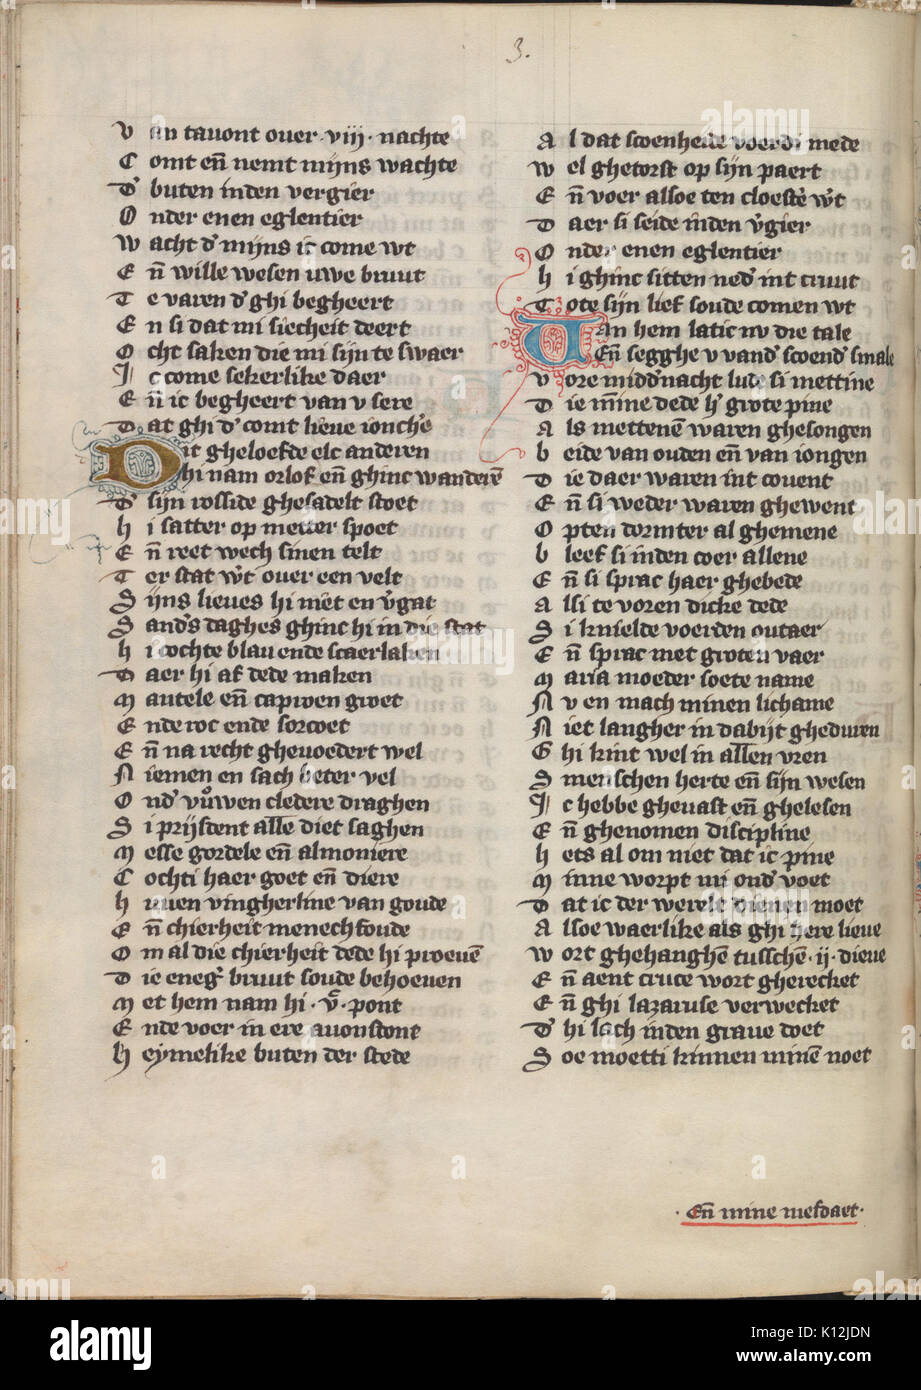 3.
Van tavont over .viij. nachte
Comt en̄ nemt mijns wachte
Dʼ buten inden vergier
Onder enen eglentier
Wacht dʼ mijns ic come wt
En̄ wille wesen uwe bruut
Te varen dʼ ghi begheert
En si dat mi siecheit deert
Ocht saken die mi sijn te swaer
Ic come sekerlike daer
En̄ ic begheert van v sere
Dat ghi dʼ comt lieve ionchʼe
Dit gheloefde elc anderen
Hi nam orlof en̄ ghinc wanderē
Dʼ sijn rosside ghesadelt stoet
Hi satter op metter spoet
En̄ reet wech sinen telt
Ter stat wʼt over een velt
Sijns lieves hi niet en vʼgat
Sandʼs daghes ghinc hi in die stat
Hi cochte blau ende scaerlaken
Daer hi af dede maken
Mantele en̄ caproen groet
Ende roc ende sorcoet
En̄ na recht ghevoedert wel
Niemen en sach beter vel
Ondʼ vrouwen cledere draghen
Si prijsdent alle diet saghen
Messe gordele en̄ almoniere
Cochti haer goet en̄ diere
Huven vingherline van goude
En̄ chierheit menechfoude
Om al die chierheit dede hi proevē
Die enegʼ bruut soude behoeven
Met hem nam hi .vᶜ. pont
Ende voer in ere avonstont
Heymelike buten der stede
Al dat scoenheide voerdi mede
Wel ghetorst op sijn paert
En̄ voer alsoe ten cloestʼe wʼt
Daer si seide inden vʼgier
Onder enen eglentier
Hi ghinc sitten nedʼ int cruut
Tote sijn lief soude comen wt
Van hem latic nv die tale
En̄ segghe v vandʼ scoendʼ smale
Vore middʼnacht lude si mettine
Die mīne dede hʼ grote pine
Als mettenē waren ghesongen
Beide van ouden en̄ van iongen
Die daer waren int covent
En̄ si weder waren ghewent
Opten dormter al ghemene
Bleef si inden coer allene
En̄ si sprac haer ghebede
Alsi te voren dicke dede
Si knielde voerden outaer
En̄ sprac met groten vaer
Maria moeder soete name
Nv en mach minen lichame
Niet langher in dabijt gheduren
Ghi kint wel in allen vren
Smenschen herte en̄ sijn wesen
Ic hebbe ghevast en̄ ghelesen
En̄ ghenomen discipline
Hets al om niet dat ic pine
Minne worpt mi ondʼ voet
Dat ic der werelt dienen moet
Alsoe waerlike als ghi here lieve
Wort ghehanghē tusschē .ij. dieve
En̄ aent cruce wort gherecket
En̄ ghi lazaruse verwecket
Dʼ hi lach inden grave doet
Soe moetti kinnen minē noet
.En̄ mine mesdaet.
alamy
a
K12JDN
www.alamy.com